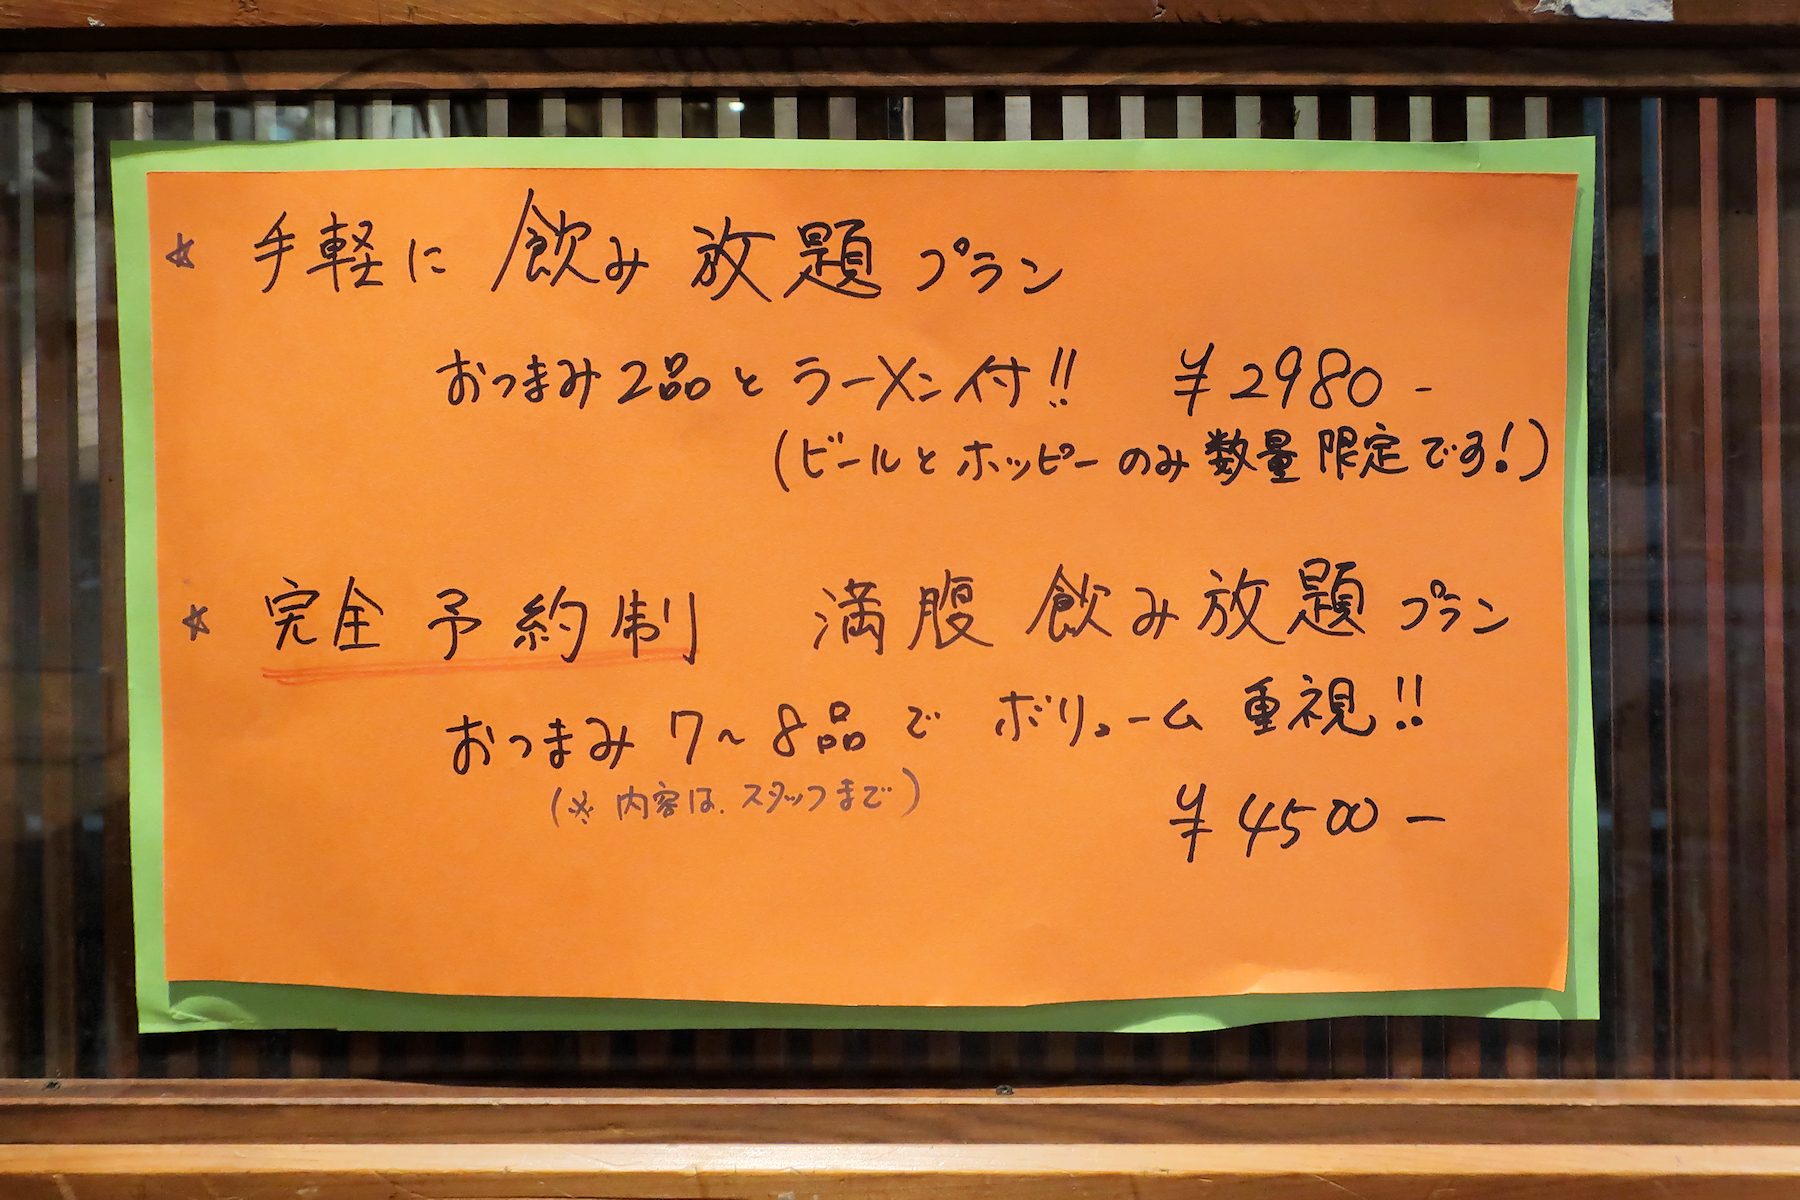 ☆ 手軽に 飲み放題プラン
おつまみ2品とラーメン付!! ¥2980-
(ビールとホッピーのみ数量限定です!)
☆ 完全予約制 満腹飲み放題プラン
おつまみ7~8品でボリューム重視!!
(※内容は、スタッフまで)
¥4500-